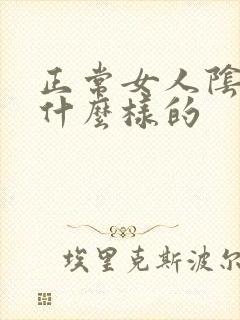 正常女人陰
什麼樣的
埃里克斯波尔